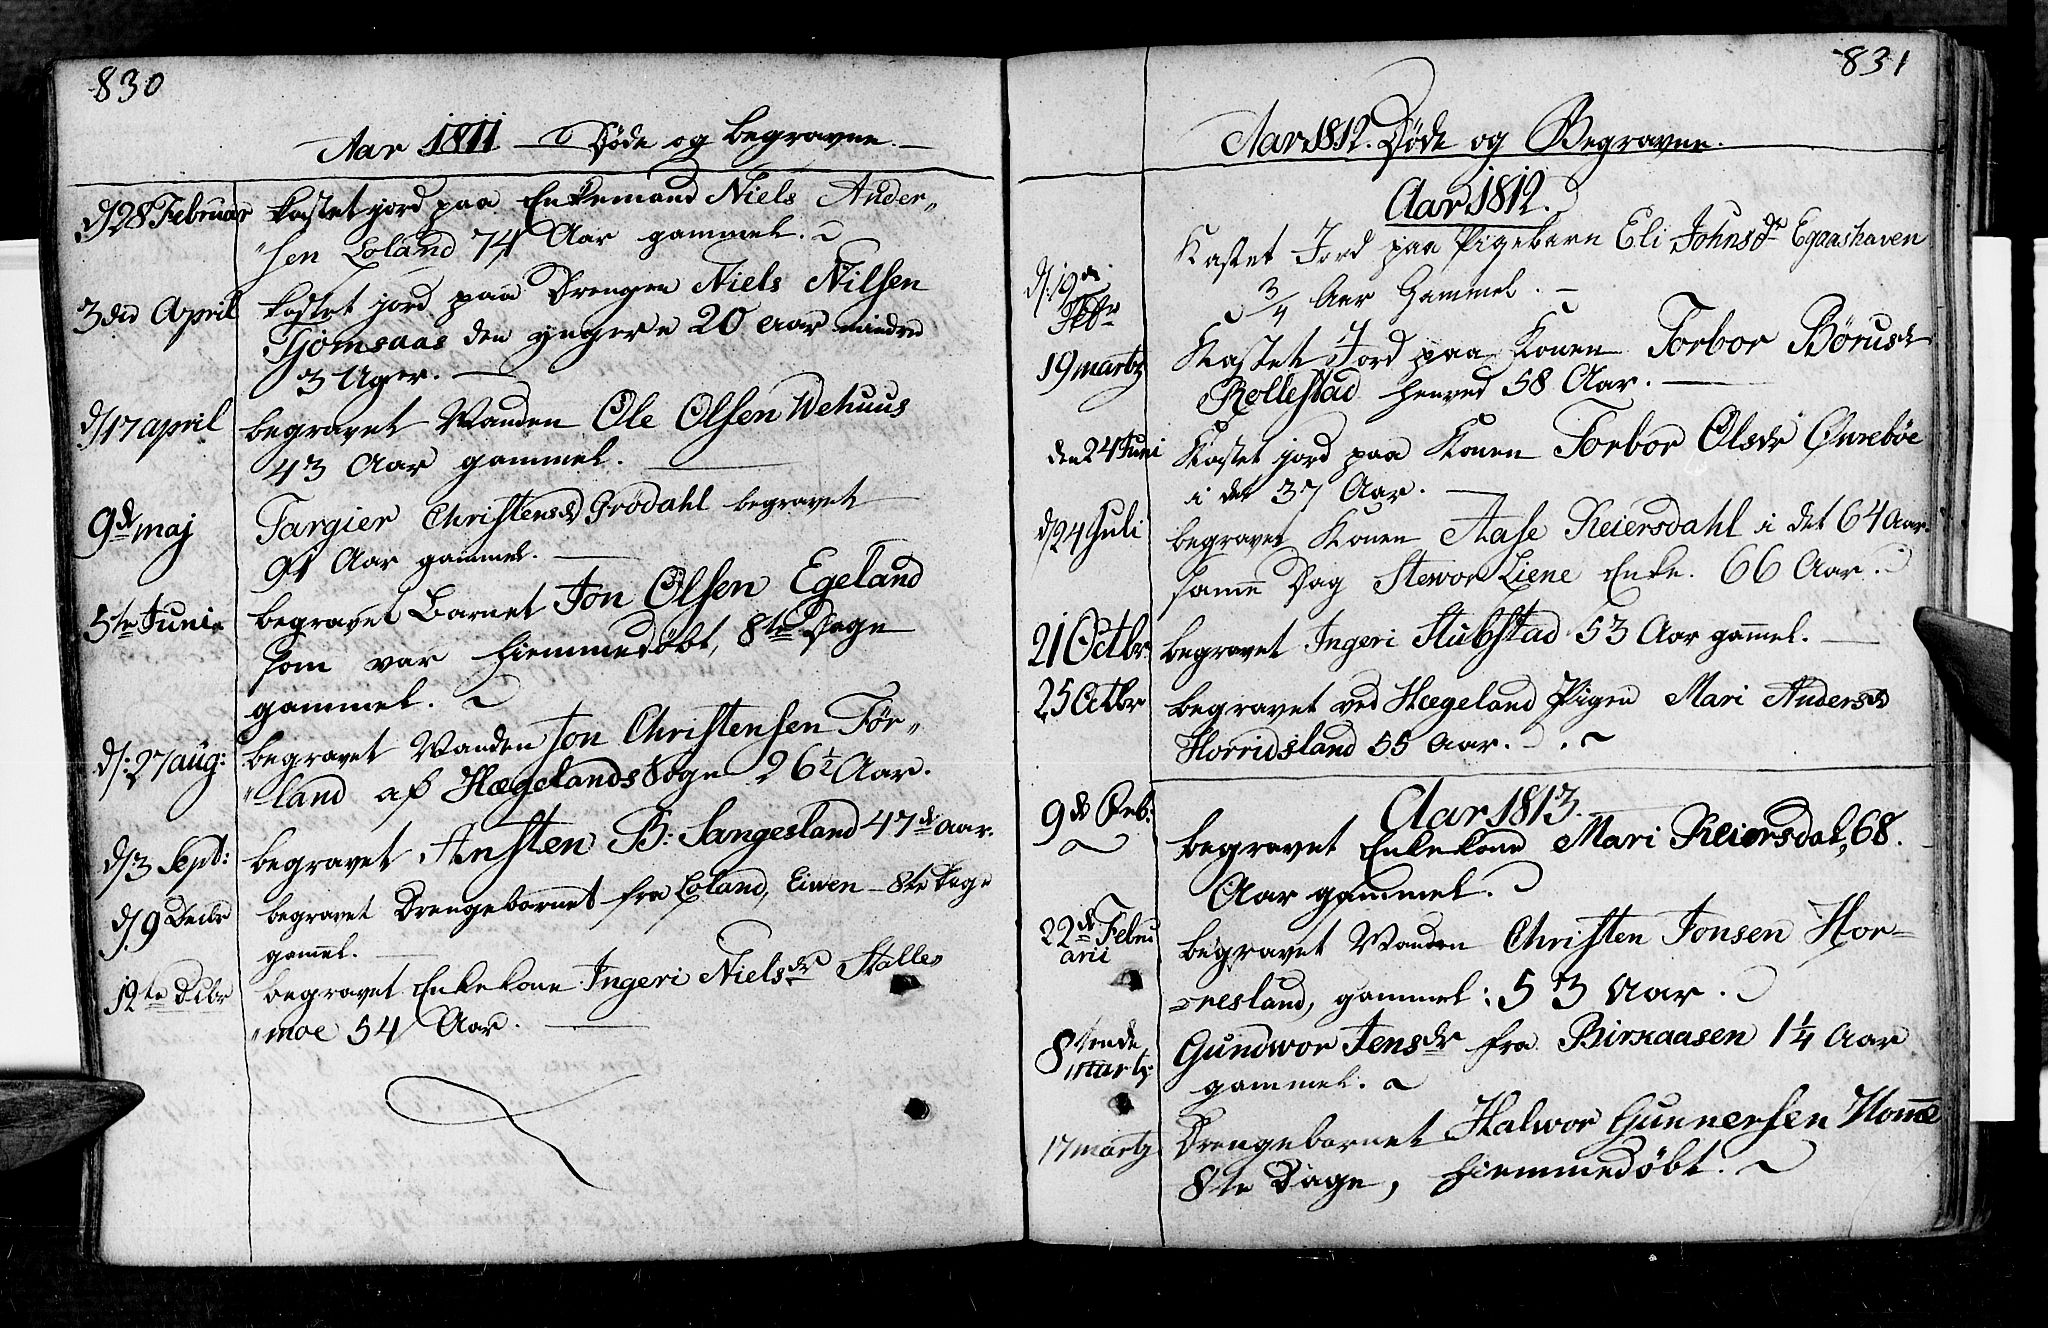 830
Aar 1811 — Døde og begravne. —
d/28 Februar kastet jord paa Enkemand Niels Ander„
„sen Loland 74 Aar gammel.
3die April kastet jord paa Drengen Niels Nilsen
Tjomsaas den yngere 20 Aar mindre
3 Uger. —
d/17 april begravet Manden Ole Olsen Wehuus
43 Aar gammel. —
9de maj Targier Christensdr Grødahl begravet
91 Aar gammel. —
5te Juni begravet Barnet Jon Olsen Egeland
som var hiemmedøbt, 8te Dage
gammel.
d/: 27 aug: begravet Manden Jon Christensen Før„
„land af Hægelands Sogn 26½ Aar.
d/3 Sept: begravet Ansten B: Sangesland 47de Aar.
d/9 Decbr begravet Drengebarnet fra Loland, Eiwen — 8te Dage
gamel. —
12te Dcbr begravet Enkekone Ingeri Nielsdr Stalle„
„moe 54 Aar. —
831
Aar 1812. Døde og Begravne.
Aar 1812.
d/: 12 Febr Kastet Jord paa Pigebarn Eli Johnsdr Egaashaven
¾ Aar Gammel. —
19 martz Kastet Jord paa Konen Torbor Børusdr
Rollestad henved 58 Aar. —
den 24 Juni Kastet jord paa Konen Torbor Olsdr Øvrebøe
i det 37 Aar. —
d/24 Juli begravet Konen Aase Reiersdahl i det 64 Aar
samme Dag Stewor Liene Enke. 66 Aar.
21 Octbr begravet Ingeri Stubstad 53 Aar gamel. —
25 Octbr begravet ved Hægeland Pigen Mari Andersdr
Horridsland 55 Aar. —
Aar 1813.
9de Feb: begravet Enkekone Mari Reiersdal, 68.
Aar gammel.
22de Febru
arii begravet Manden Christen Jonsen Hor-
resland, gammel: 53 Aar.
8tende martz Gundwor Jensdr fra Birkaasen 1¼ Aar
gammel.
17 martz Drengebarnet Halwor Gunnersen Home
8te Dage, hiemmedøbt.